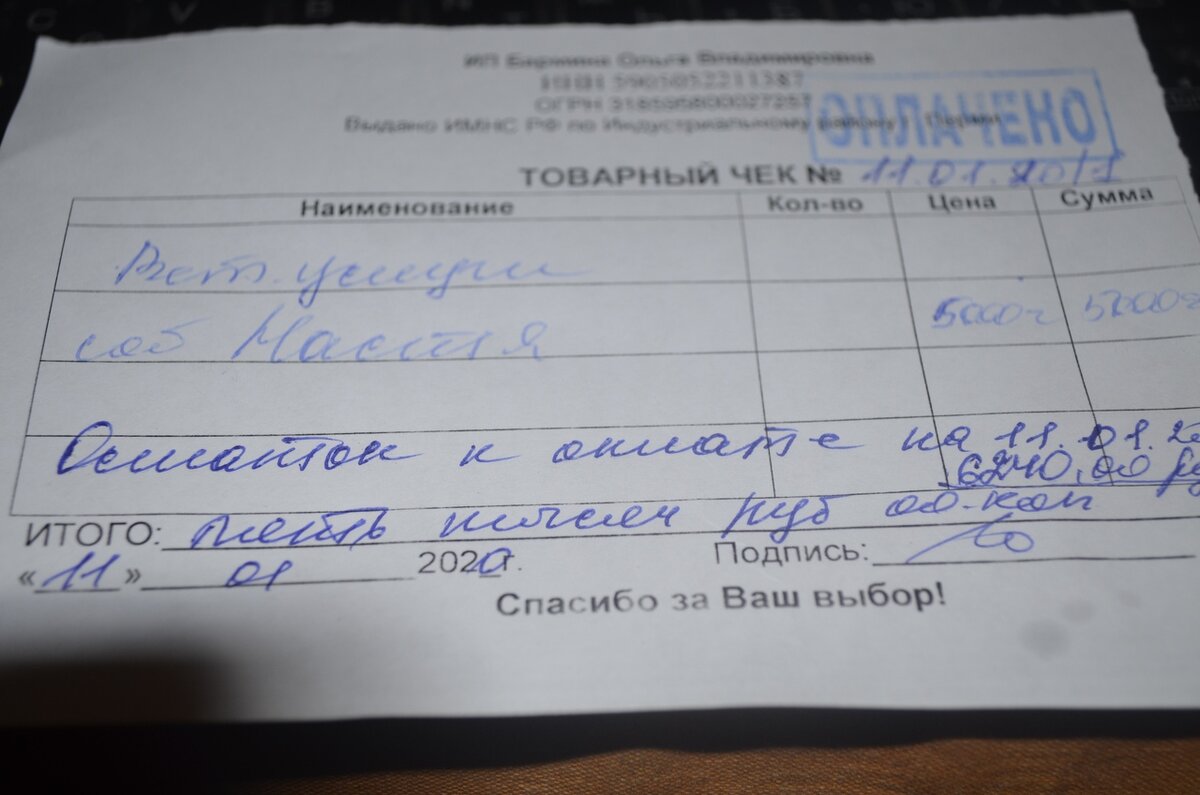 ИП Бармина Ольга Владимировна
ИНН 5905052211387
ОГРН 318595800027257
Выдано ИМНС РФ по Индустриальному району г. Перми
ОПЛАЧЕНО
ТОВАРНЫЙ ЧЕК № 11.01.20/1
Наименование Кол-во Цена Сумма
Вет. услуги
соб Настя 5000 5000
Остаток к оплате на 11.01.20
6240,00 ру
ИТОГО: пять тысяч руб 00-коп
«11» 01 2020г. Подпись:
Спасибо за Ваш выбор!